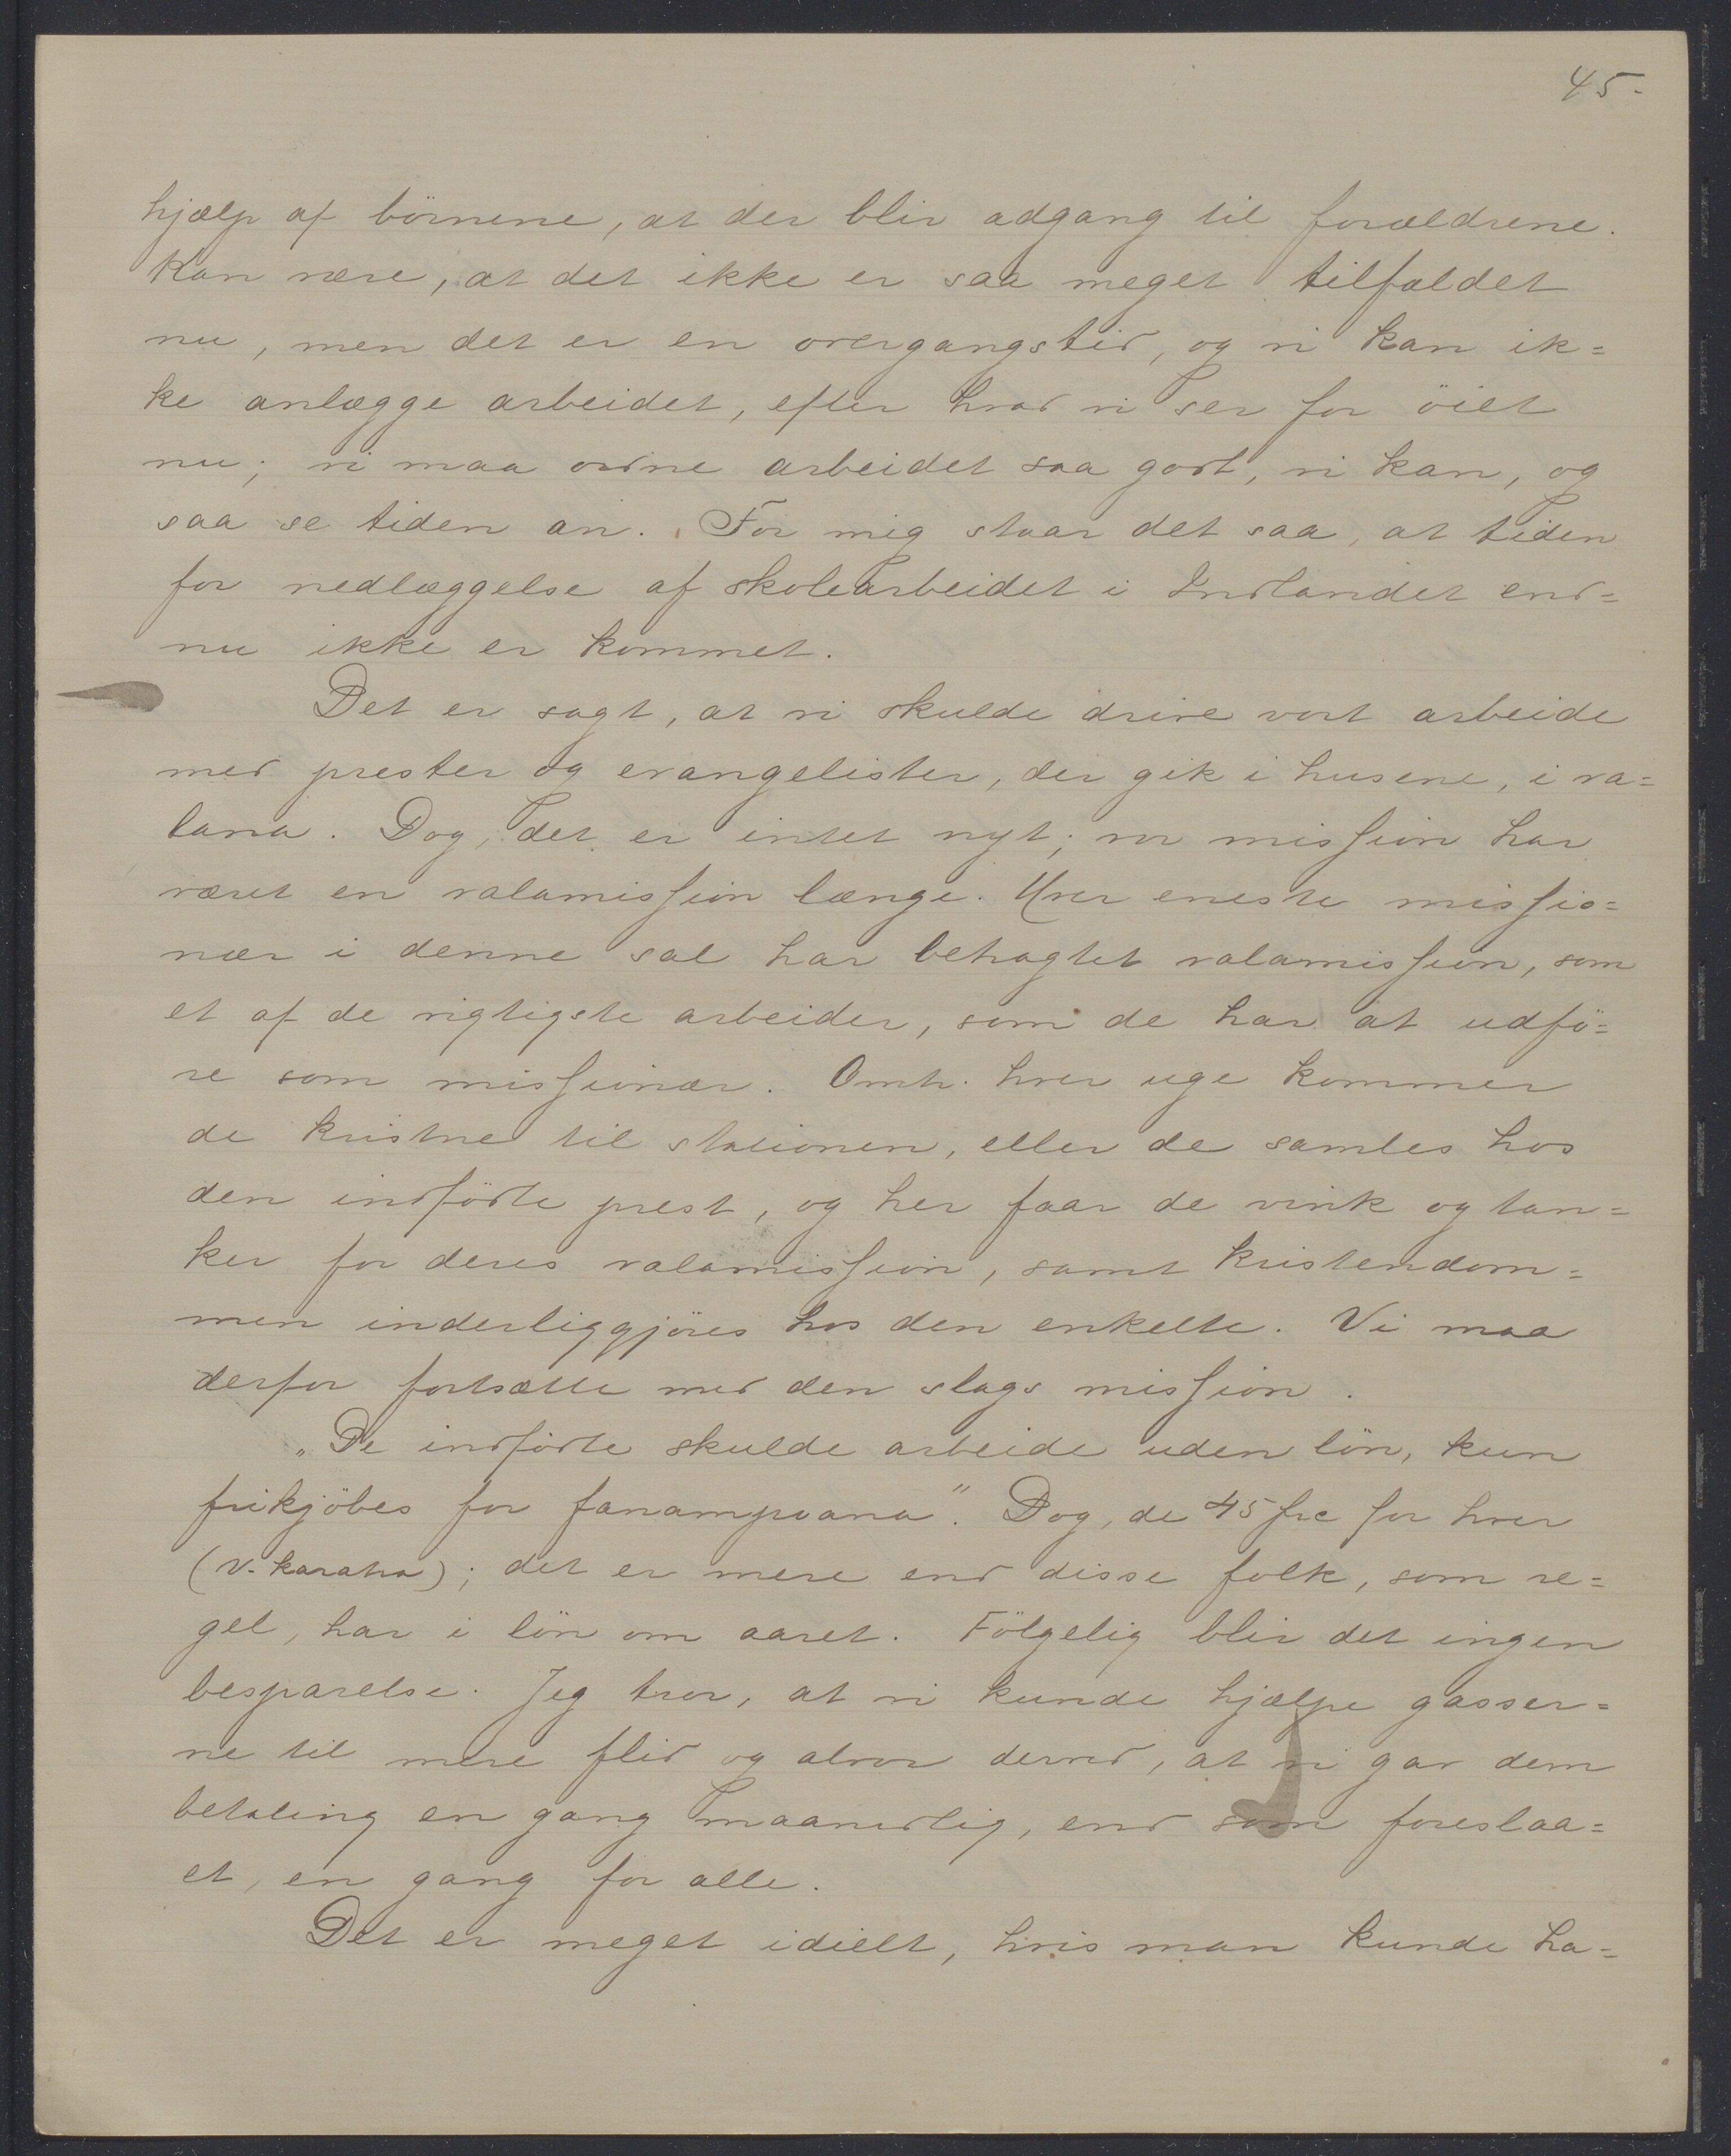 45.
hjælp af börnene, at der blir adgang til forældrene.
Kan være, at det ikke er saa meget tilfældet
nu, men det er en overgangstid, og vi kan ik=
ke anlægge arbeidet, efter hvad vi ser for öiet
nu; vi maa ordne arbeidet saa godt, vi kan, og
saa se tiden an. For mig staar det saa, at tiden
for nedlæggelse af skolearbeidet i Indlandet end=
nu ikke er kommet.
Det er sagt, at vi skulde drive vort arbeide
med prester og evangelister, der gik i husene, i va=
lana. Dog, det er intet nyt; vor mission har
været en valamission længe. Hver eneste missio=
nær i denne sal har betragtet valamission, som
et af de vigtigste arbeider, som de har at udfö=
re som missionær. Omtr. hver uge kommer
de kristne til stationen, eller de samles hos
den indfödte prest, og her faar de vink og tan=
ker for deres valamission, samt kristendom=
men inderliggjöres hos den enkelte. Vi maa
derfor fortsætte med den slags mission.
„De indfödte skulde arbeide uden lön, kun
frikjöbes for fanampoana". Dog, de 45 frc for hver
(v. karatra); det er mere end disse folk, som re=
gel, har i lön om aaret. Fölgelig blir det ingen
besparelse. Jeg tror, at vi kunde hjælpe gasser=
ne til mere flid og alvor derved, at vi gav dem
betaling en gang maanedlig, end som foreslaa=
et, en gang for alle.
Det er meget idielt, hvis man kunde ha=